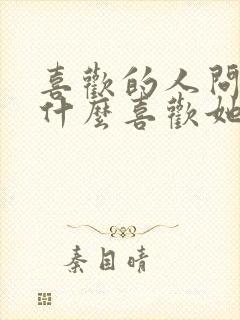 喜歡的人問
什麼喜歡她
秦目晴